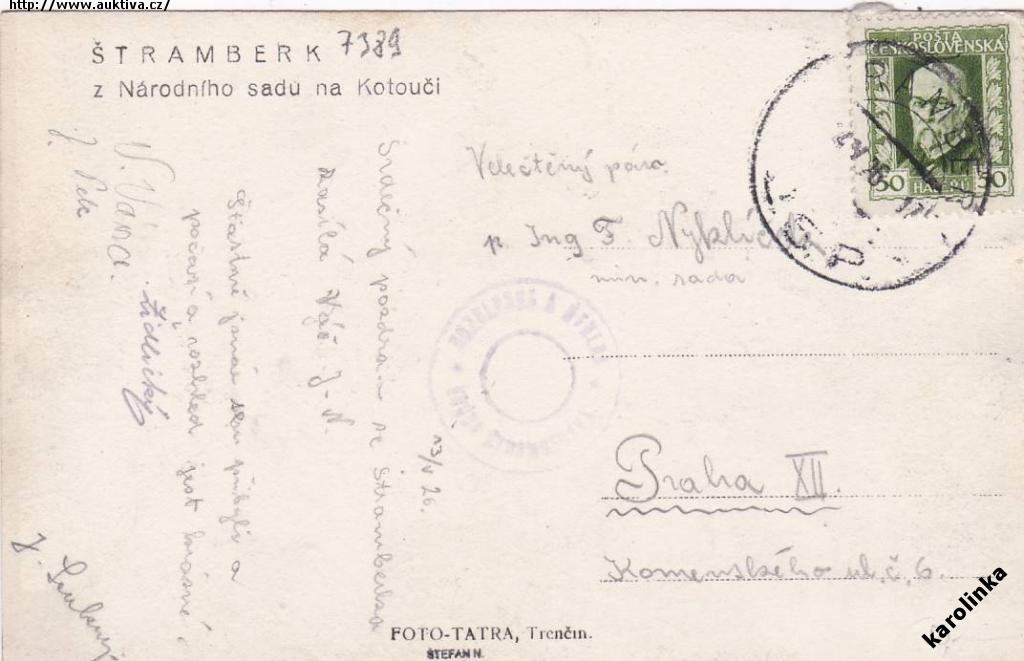 http://www.auktiva.cz/
ŠTRAMBERK 7389
z Národního sadu na Kotouči
POŠTA
ČESKOSLOVENSKÁ
50 50
HALÉŘŮ
Velectěný pán
p. Ing F. Nyklíček
min. rada
Praha XII.
Komenského ul. č. 6.
Srdečný pozdrav ze Štramberka
zasílá Váš J. N.
13/V 26.
Šťastně jsme sem přibyli a
počasí a rozhled jest krásné
V. Vána.
J. Pek
Židlický
FOTO-TATRA, Trenčín.
ŠTEFAN N.
karolinka